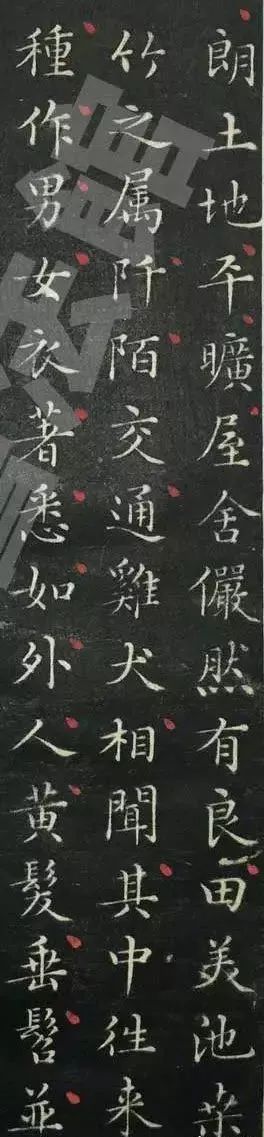 朗土地平曠屋舍儼然有良田美池桒
竹之属阡陌交通雞犬相聞其中往来
種作男女衣著悉如外人黄髮垂髫並